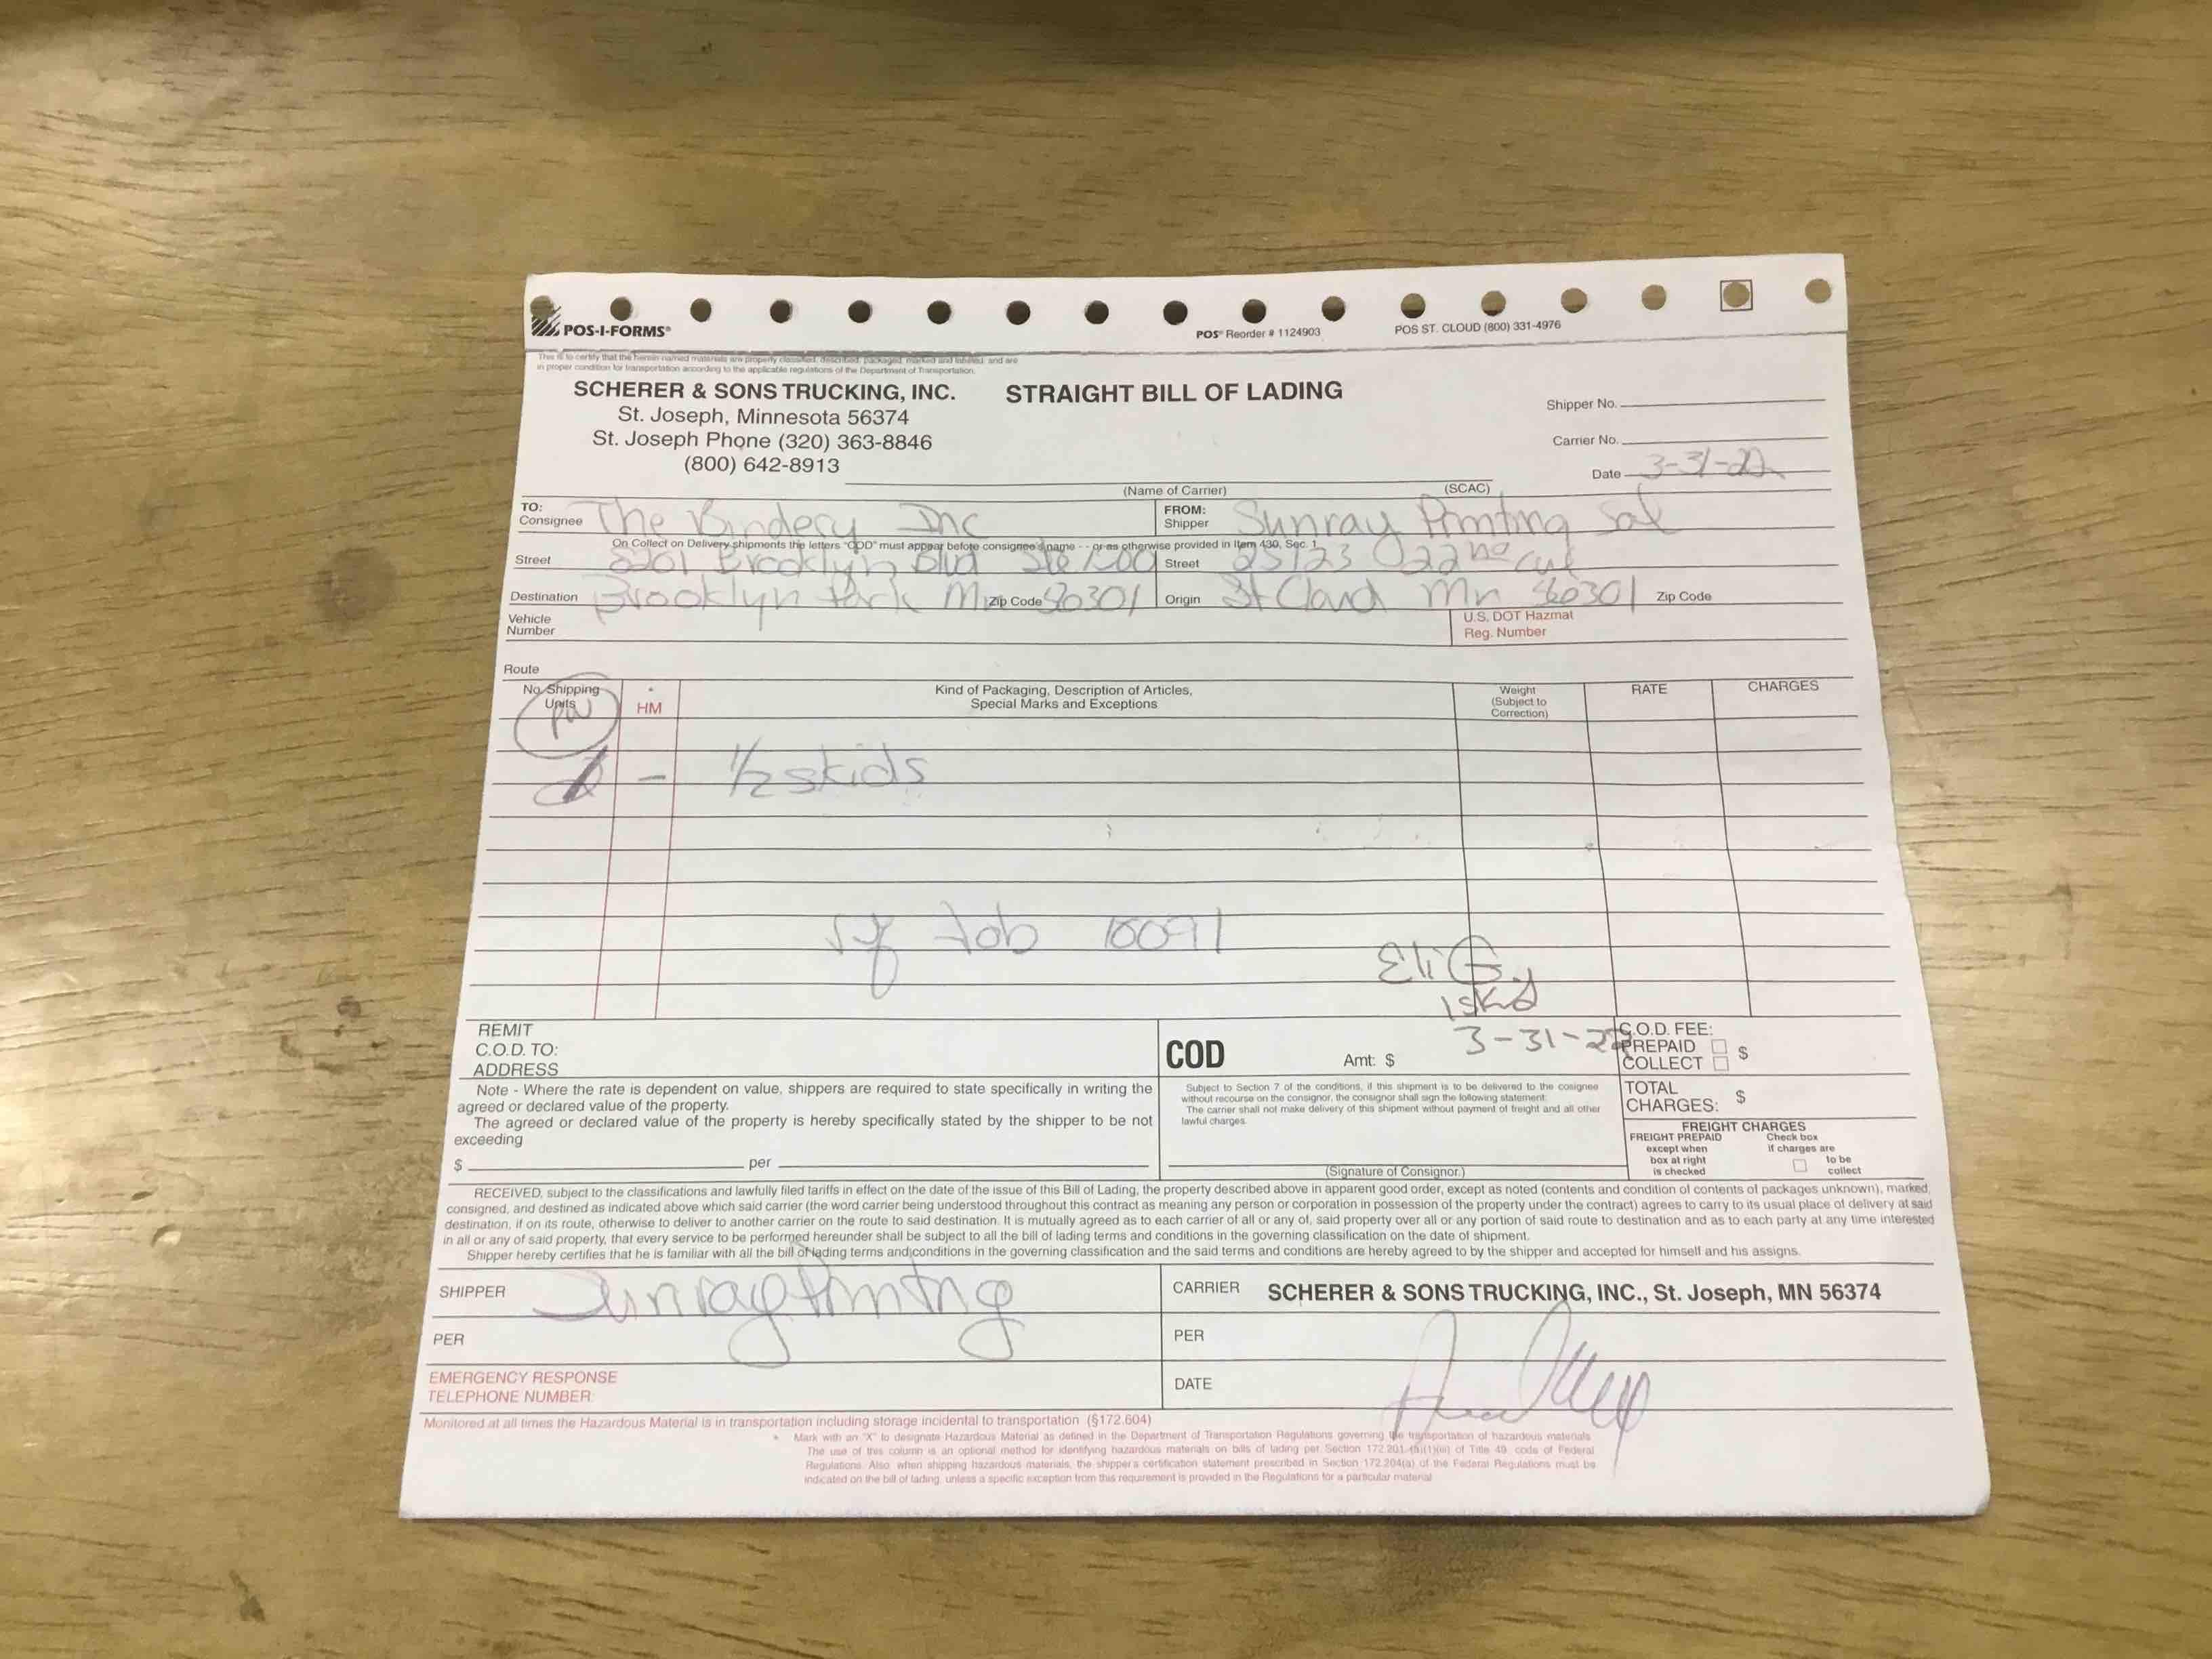 POS-I-FORMS®
POS® Reorder # 1124903 POS ST. CLOUD (800) 331-4976
This is to certify that the herein named materials are properly classified, described, packaged, marked and labeled, and are
in proper condition for transportation according to the applicable regulations of the Department of Transportation.
SCHERER & SONS TRUCKING, INC. STRAIGHT BILL OF LADING
St. Joseph, Minnesota 56374
St. Joseph Phone (320) 363-8846
(800) 642-8913
Shipper No.
Carrier No.
Date 3-31-22
(Name of Carrier) (SCAC)
TO: Consignee The Bindery Inc
FROM: Shipper Sunray Printing Sol
On Collect on Delivery shipments the letters "COD" must appear before consignee's name - - or as otherwise provided in Item 430, Sec. 1
Street 8201 Brooklyn Blvd Ste
Street 25123 22nd
Destination Brooklyn Park Mn Zip Code 56301
Origin St Cloud Mn 56301 Zip Code
Vehicle Number
U.S. DOT Hazmat
Reg. Number
Route
No. Shipping Units
* HM
Kind of Packaging, Description of Articles,
Special Marks and Exceptions
Weight
(Subject to
Correction)
RATE
CHARGES
- 1/2 skids
Job
Eli G
1 skd
3-31-22
REMIT
C.O.D. TO:
ADDRESS
COD Amt: $
C.O.D. FEE:
PREPAID
COLLECT $
Note - Where the rate is dependent on value, shippers are required to state specifically in writing the
agreed or declared value of the property.
The agreed or declared value of the property is hereby specifically stated by the shipper to be not
exceeding
$ per
Subject to Section 7 of the conditions, if this shipment is to be delivered to the cosignee
without recourse on the consignor, the consignor shall sign the following statement:
The carrier shall not make delivery of this shipment without payment of freight and all other
lawful charges.
(Signature of Consignor.)
TOTAL
CHARGES: $
FREIGHT CHARGES
FREIGHT PREPAID
except when
box at right
is checked
Check box
if charges are
to be
collect
RECEIVED, subject to the classifications and lawfully filed tariffs in effect on the date of the issue of this Bill of Lading, the property described above in apparent good order, except as noted (contents and condition of contents of packages unknown), marked,
consigned, and destined as indicated above which said carrier (the word carrier being understood throughout this contract as meaning any person or corporation in possession of the property under the contract) agrees to carry to its usual place of delivery at said
destination, if on its route, otherwise to deliver to another carrier on the route to said destination. It is mutually agreed as to each carrier of all or any of, said property over all or any portion of said route to destination and as to each party at any time interested
in all or any of said property, that every service to be performed hereunder shall be subject to all the bill of lading terms and conditions in the governing classification on the date of shipment.
Shipper hereby certifies that he is familiar with all the bill of lading terms and conditions in the governing classification and the said terms and conditions are hereby agreed to by the shipper and accepted for himself and his assigns.
SHIPPER Sunray Printing
CARRIER SCHERER & SONS TRUCKING, INC., St. Joseph, MN 56374
PER
PER
EMERGENCY RESPONSE
TELEPHONE NUMBER:
DATE
Monitored at all times the Hazardous Material is in transportation including storage incidental to transportation (§172.604)
* Mark with an "X" to designate Hazardous Material as defined in the Department of Transportation Regulations governing the transportation of hazardous materials.
The use of this column is an optional method for identifying hazardous materials on bills of lading per Section 172.201 (a)(1)(iii) of Title 49, code of Federal
Regulations. Also when shipping hazardous materials, the shipper's certification statement prescribed in Section 172.204(a) of the Federal Regulations must be
indicated on the bill of lading, unless a specific exception from this requirement is provided in the Regulations for a particular material.